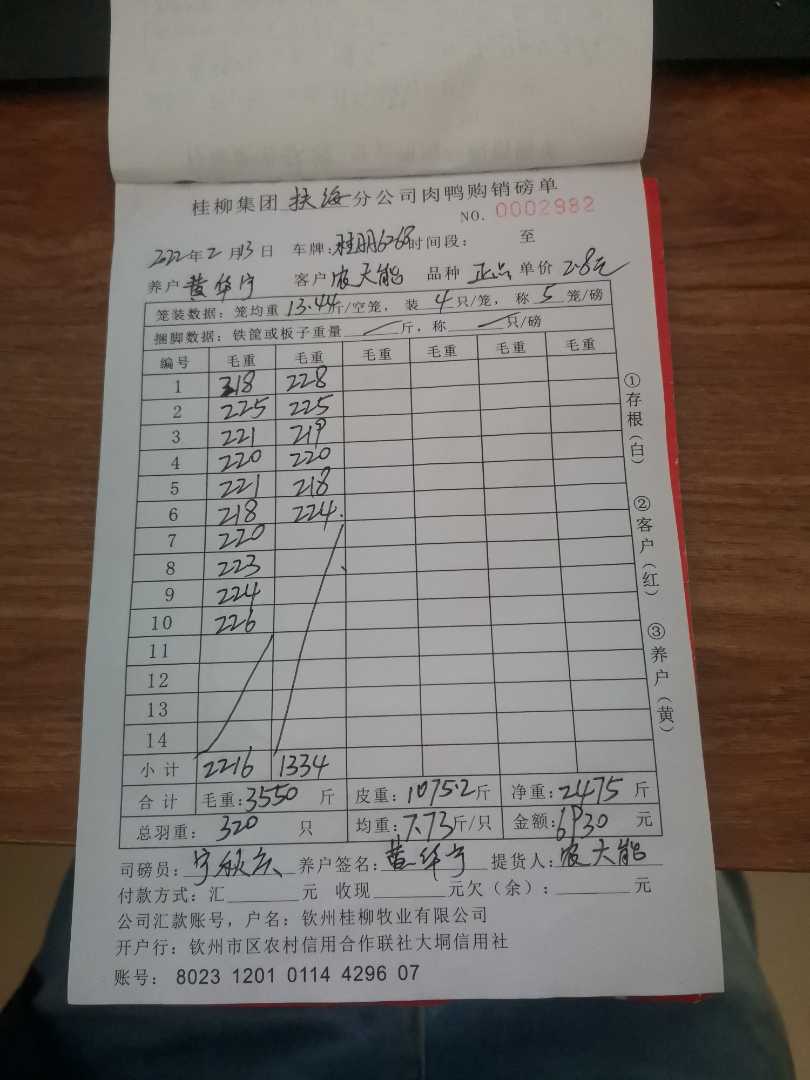 桂柳集团 扶海 分公司肉鸭购销磅单
NO. 0002982
2022年2月13日 车牌:桂明6268时间段: 至
养户 黄华宁 客户 农天能 品种 正品 单价 2.8元
笼装数据:笼均重 13.44斤/空笼,装 4 只/笼,称 5 笼/磅
捆脚数据:铁筐或板子重量 斤,称 只/磅
编号 毛重 毛重 毛重 毛重 毛重 毛重
1 218 228
2 225 225
3 221 219
4 220 220
5 221 218
6 218 224.
7 220
8 223
9 224
10 226
11
12
13
14
小计 2216 1334
合计 毛重:3550 斤 皮重:1075.2斤 净重:2475 斤
总羽重: 320 只 均重:7.73斤/只 金额:6930 元
司磅员: 养户签名:黄华宁 提货人:农天能
付款方式:汇 元 收现 元欠(余): 元
公司汇款账号,户名:钦州桂柳牧业有限公司
开户行:钦州市区农村信用合作联社大垌信用社
账号: 8023 1201 0114 4296 07
①存根(白)
②客户(红)
③养户(黄)